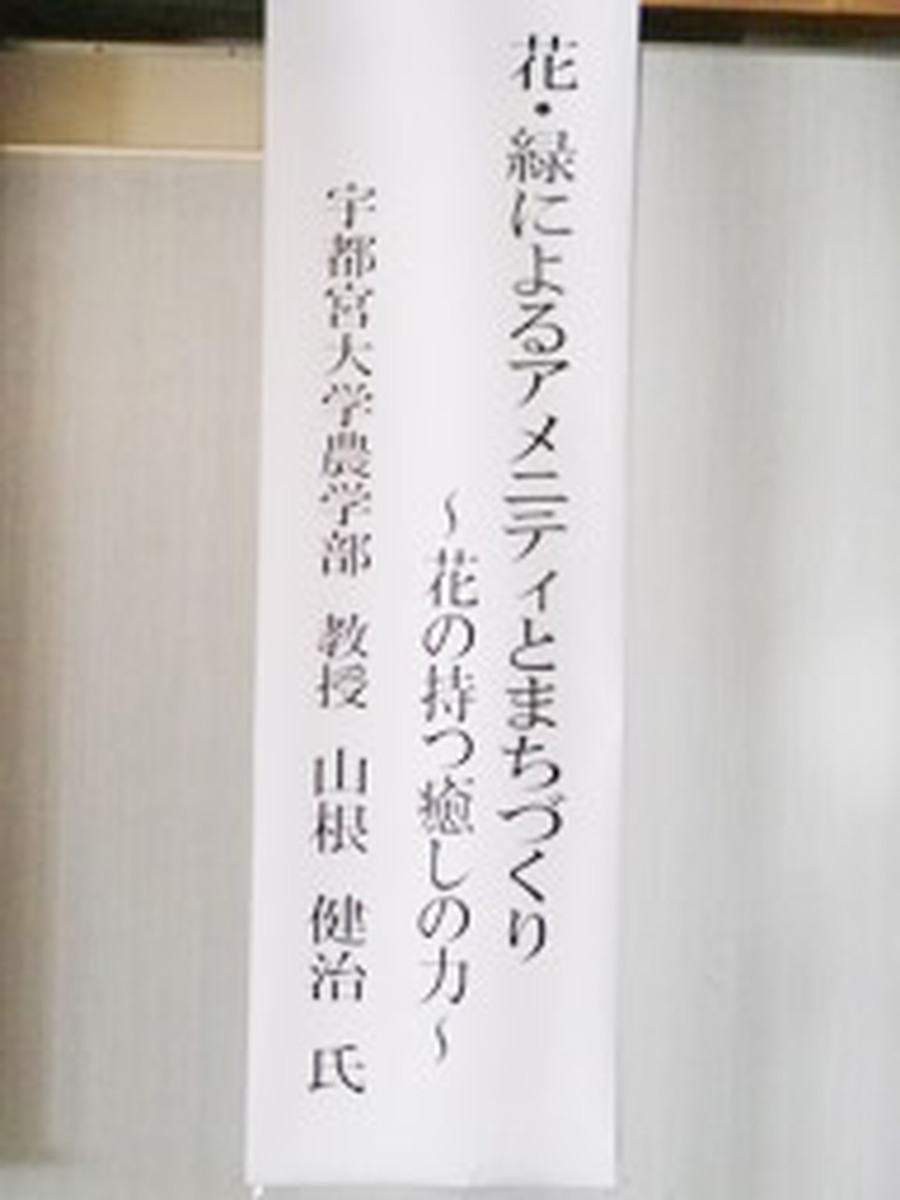 花・緑によるアメニティとまちづくり
～花の持つ癒しの力～
宇都宮大学農学部 教授 山根 健治 氏